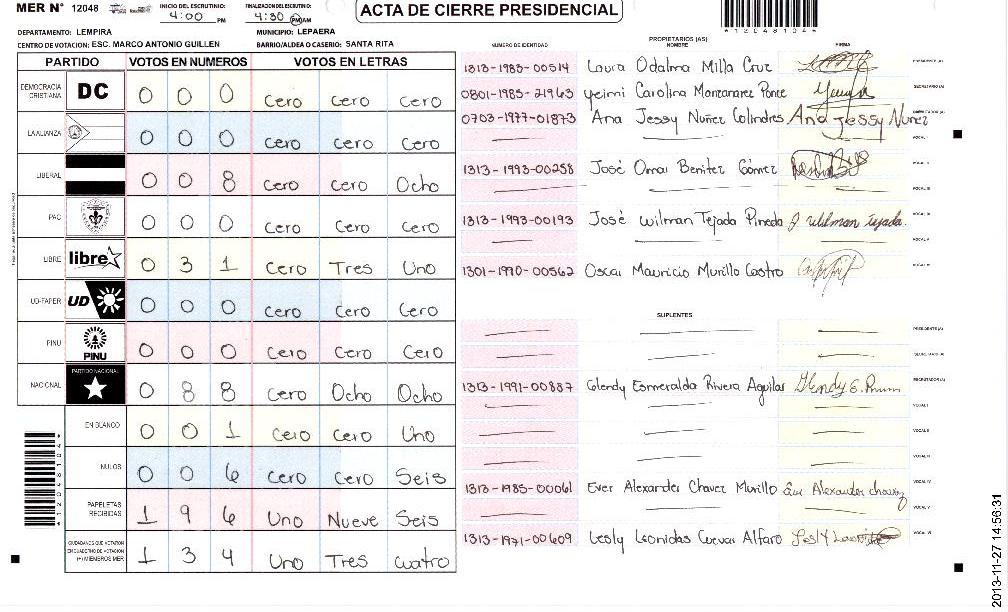 MER N° 12048
INICIO DEL ESCRUTINIO: 4:00 PM
FINALIZACION DEL ESCRUTINIO: 4:30 PM AM
ACTA DE CIERRE PRESIDENCIAL
*12048104*
DEPARTAMENTO: LEMPIRA MUNICIPIO: LEPAERA
CENTRO DE VOTACION: ESC. MARCO ANTONIO GUILLEN BARRIO/ALDEA O CASERIO: SANTA RITA
PARTIDO VOTOS EN NUMEROS VOTOS EN LETRAS
DEMOCRACIA CRISTIANA DC 0 0 0 Cero Cero Cero
LA ALIANZA 0 0 0 Cero Cero Cero
LIBERAL 0 0 8 Cero Cero Ocho
PAC 0 0 0 Cero Cero Cero
LIBRE libre 0 3 1 Cero Tres Uno
UD-FAPER UD 0 0 0 Cero Cero Cero
PINU PINU 0 0 0 Cero Cero Cero
NACIONAL PARTIDO NACIONAL 0 8 8 Cero Ocho Ocho
EN BLANCO 0 0 1 Cero Cero Uno
NULOS 0 0 6 Cero Cero Seis
PAPELETAS RECIBIDAS 1 9 6 Uno Nueve Seis
CIUDADANOS QUE VOTARON EN CUADERNO DE VOTACION (+) MIEMBROS MER 1 3 4 Uno Tres Cuatro
*12048104*
PROPIETARIOS (AS)
NUMERO DE IDENTIDAD NOMBRE FIRMA
1313-1983-00514 Laura Odalma Milla Cruz PRESIDENTE (A)
0801-1985-21963 Yeimi Carolina Manzanarez Ponce SECRETARIO (A)
0703-1977-01873 Ana Jessy Nuñez Colindres Ana Jessy Nunez ESCRUTADOR (A)
VOCAL I
1313-1993-00258 José Omar Benitez Gómez VOCAL II
VOCAL III
1313-1993-00193 José Wilman Tejada Pineda J Wilman Tejada. VOCAL IV
VOCAL V
1301-1970-00562 Oscar Mauricio Murillo Castro VOCAL VI
SUPLENTES
PRESIDENTE (A)
SECRETARIO (A)
1313-1991-00887 Glendy Esmeralda Rivera Aguilar Glendy E. ESCRUTADOR (A)
VOCAL I
VOCAL II
VOCAL III
1313-1985-00061 Ever Alexander Chavez Murillo Alexander VOCAL IV
VOCAL V
1313-1971-00609 Lesly Leonidas Cuevas Alfaro Lesly VOCAL VI
2013-11-27 14:56:31